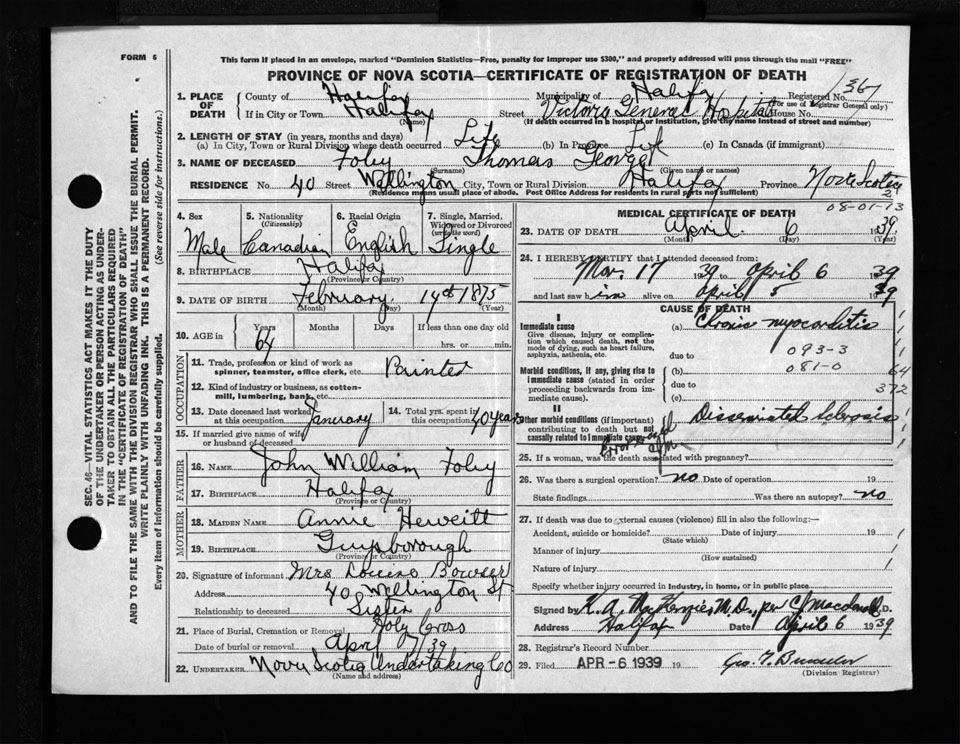 FORM 6
This form if placed in an envelope, marked "Dominion Statistics—Free, penalty for improper use $300," and properly addressed will pass through the mail "FREE"
PROVINCE OF NOVA SCOTIA—CERTIFICATE OF REGISTRATION OF DEATH
367
1. PLACE OF DEATH
County of Halifax Municipality of Halifax Registered No.
(For use of Registrar General only)
If in City or Town Halifax Street Victoria General Hospital House No.
(Name) (If death occurred in a hospital or institution, give the name instead of street and number)
2. LENGTH OF STAY (in years, months and days)
(a) In City, Town or Rural Division where death occurred Life (b) In Province Life (c) In Canada (if immigrant)
3. NAME OF DECEASED Foley Thomas George
(Surname) (Given name or names)
RESIDENCE No. 40 Street Wellington City, Town or Rural Division Halifax Province Nova Scotia
(Residence means usual place of abode. Post Office Address for residents in rural parts not sufficient)
2
08-01-13
4. Sex Male
5. Nationality (Citizenship) Canadian
6. Racial Origin English
7. Single, Married, Widowed or Divorced (write the word) Single
8. BIRTHPLACE Halifax
(Province or Country)
9. DATE OF BIRTH February 14th 1875
(Month) (Day) (Year)
10. AGE in Years 64 Months Days If less than one day old hrs. or min.
OCCUPATION
11. Trade, profession or kind of work as spinner, teamster, office clerk, etc. Painter
12. Kind of industry or business, as cotton-mill, lumbering, bank, etc.
13. Date deceased last worked at this occupation January
14. Total yrs. spent in this occupation 40 years
15. If married give name of wife or husband of deceased
FATHER
16. NAME John William Foley
17. BIRTHPLACE Halifax
(Province or Country)
MOTHER
18. MAIDEN NAME Annie Heweitt
19. BIRTHPLACE Guysborough
(Province or Country)
20. Signature of informant Mrs Louise Bowser
Address 40 Wellington St
Relationship to deceased Sister
21. Place of Burial, Cremation or Removal Holy Cross
Date of burial or removal April 7/39
22. UNDERTAKER Nova Scotia Undertaking Co
(Name and address)
MEDICAL CERTIFICATE OF DEATH
23. DATE OF DEATH April 6 1939
(Month) (Day) (Year)
24. I HEREBY CERTIFY that I attended deceased from:
Mar. 17 39 to April 6 1939
and last saw him alive on April 5 1939
CAUSE OF DEATH
I
Immediate cause
Give disease, injury or complication which caused death, not the mode of dying, such as heart failure, asphyxia, asthenia, etc.
(a) Chronic myocarditis
due to 093-3
Morbid conditions, if any, giving rise to immediate cause (stated in order proceeding backwards from immediate cause).
(b) 081-0 64
due to 372
(c)
II
Other morbid conditions (if important) contributing to death but not causally related to immediate cause. Disseminated Sclerosis
25. If a woman, was the death associated with pregnancy?
26. Was there a surgical operation? no Date of operation 19
State findings Was there an autopsy? no
27. If death was due to external causes (violence) fill in also the following:—
Accident, suicide or homicide? Date of injury 19
(State which)
Manner of injury
(How sustained)
Nature of injury
Specify whether injury occurred in industry, in home, or in public place
Signed by K. A. MacKenzie, M.D., per C Macdonald M.D.
Address Halifax Date April 6 1939
28. Registrar's Record Number
29. Filed APR -6 1939 19
(Division Registrar)
SEC. 46—VITAL STATISTICS ACT MAKES IT THE DUTY
OF THE UNDERTAKER OR PERSON ACTING AS UNDER-
TAKER TO OBTAIN ALL THE PARTICULARS REQUIRED
IN THE "CERTIFICATE OF REGISTRATION OF DEATH"
AND TO FILE THE SAME WITH THE DIVISION REGISTRAR WHO SHALL ISSUE THE BURIAL PERMIT.
WRITE PLAINLY WITH UNFADING INK. THIS IS A PERMANENT RECORD.
Every item of information should be carefully supplied. (See reverse side for instructions.)